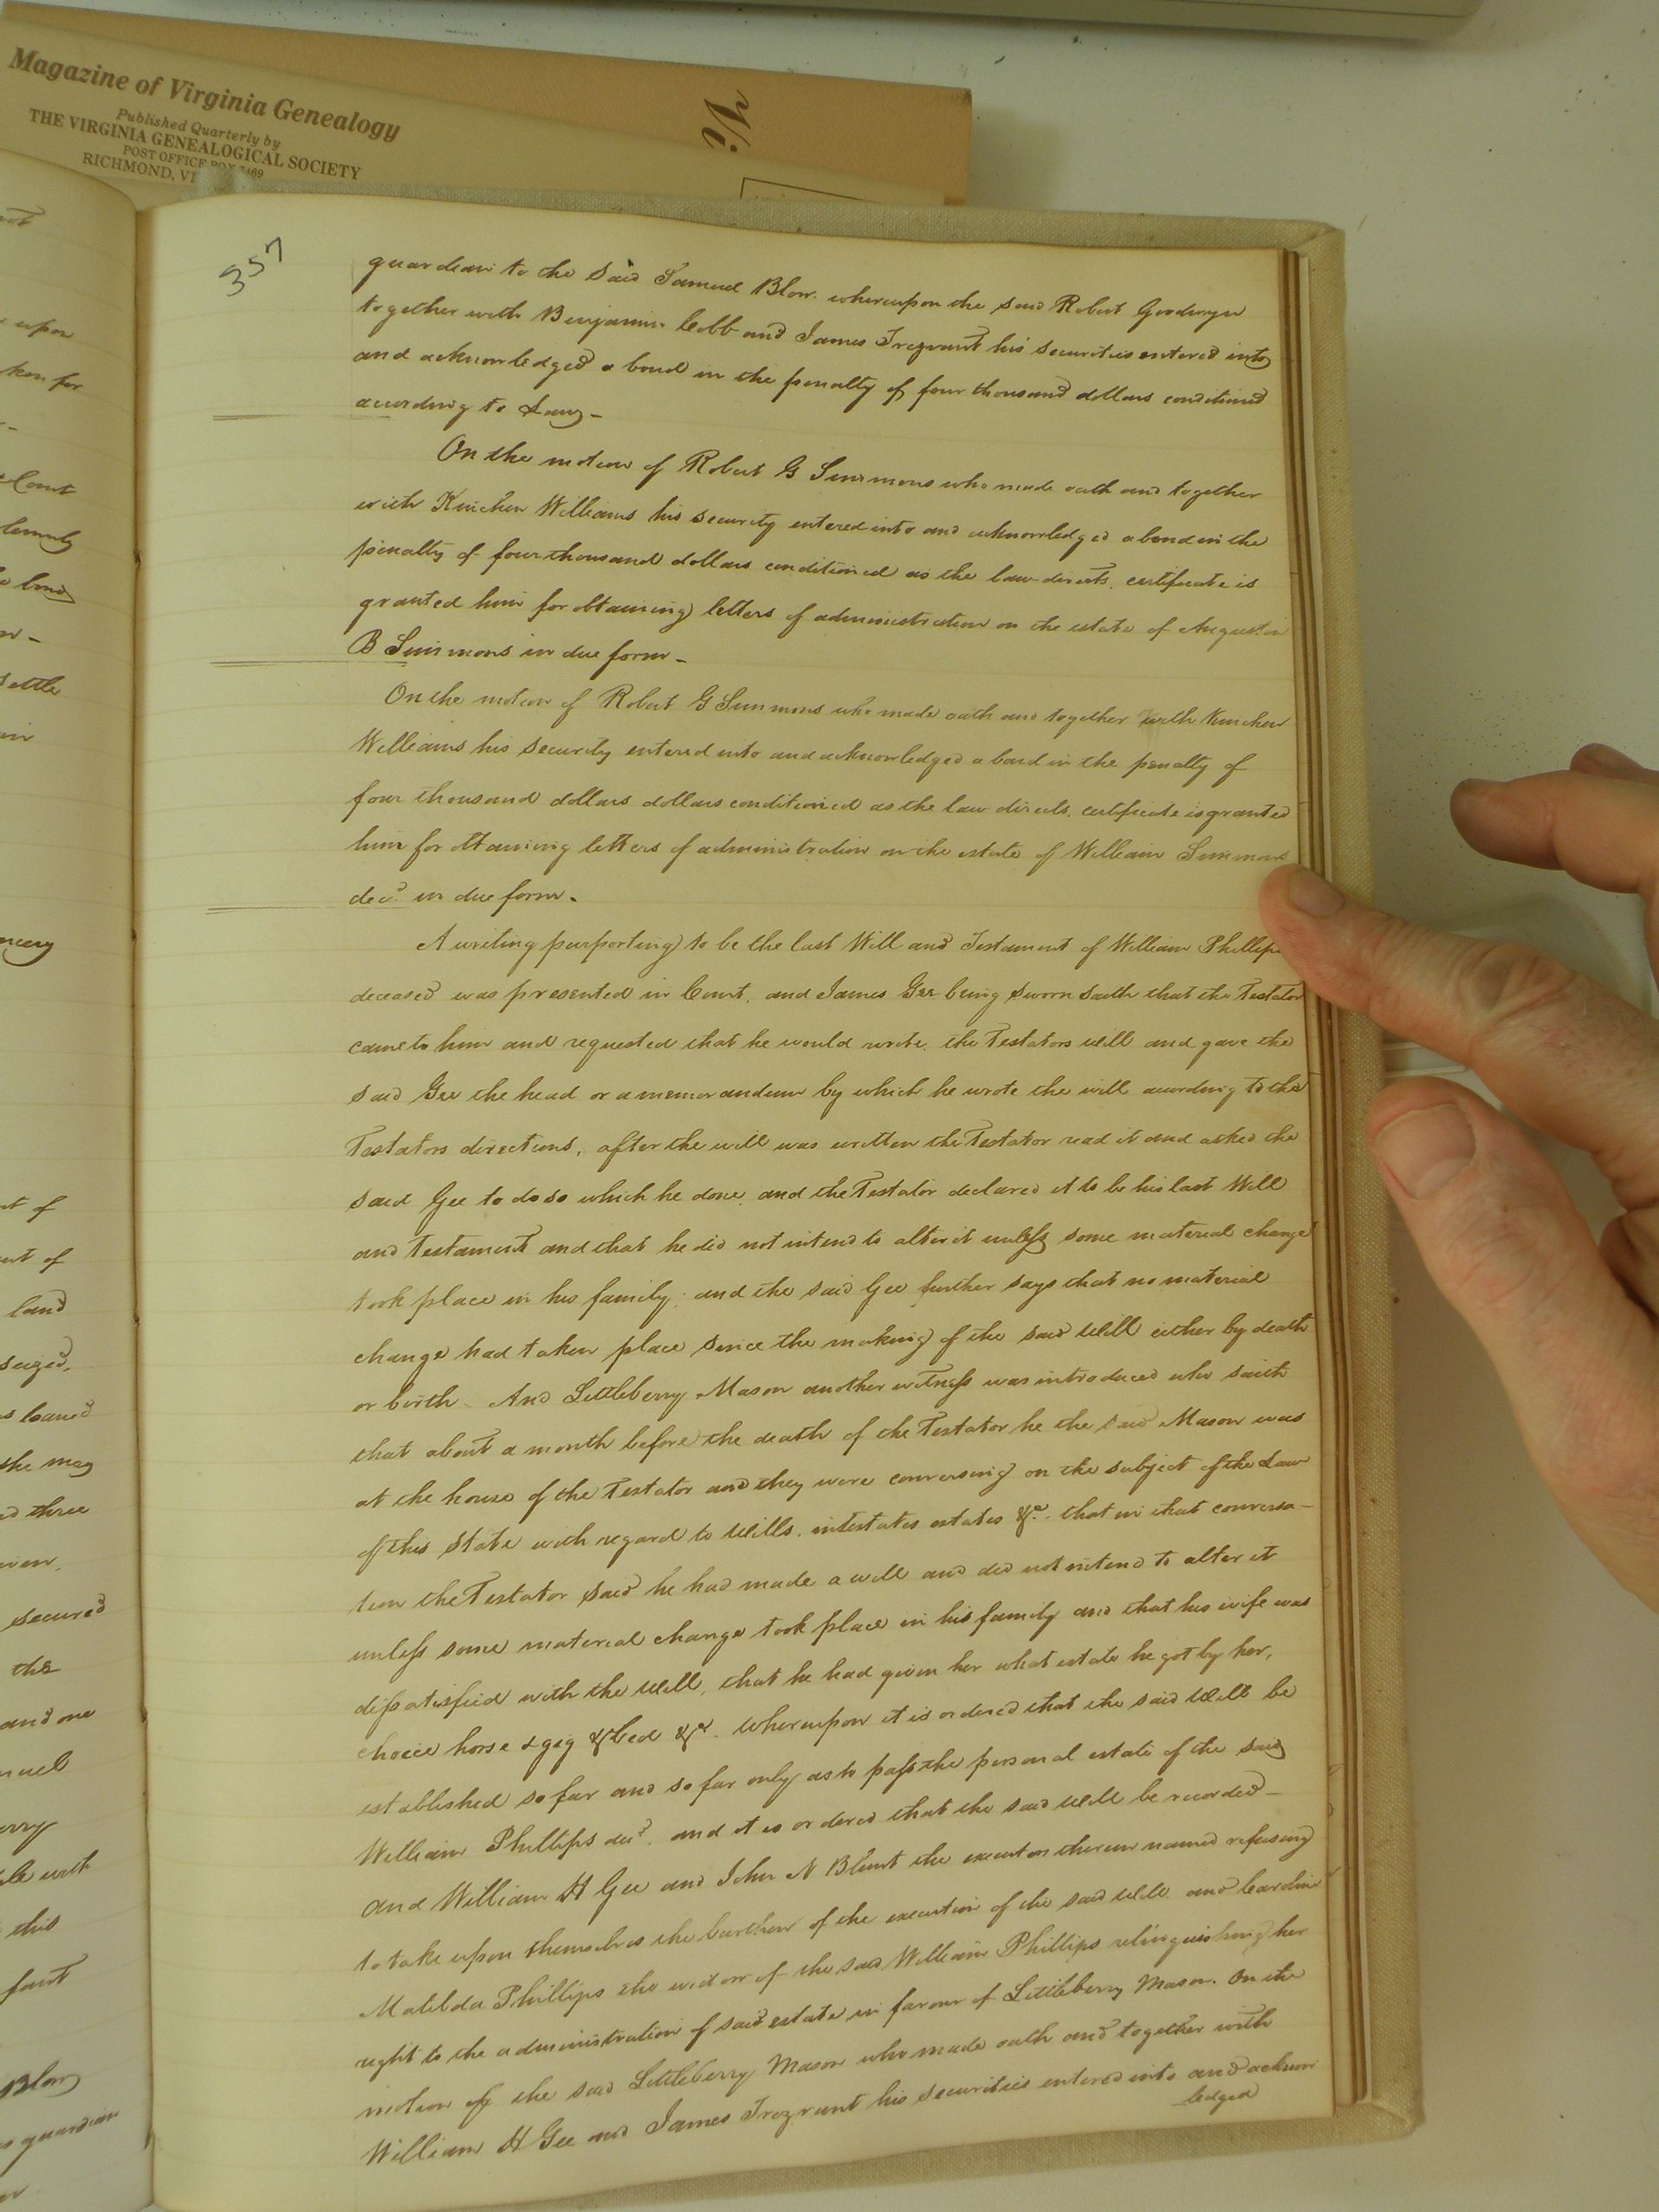 Magazine of Virginia Genealogy
Published Quarterly by
THE VIRGINIA GENEALOGICAL SOCIETY
POST OFFICE BOX 7469
RICHMOND,
357
guardian to the said Samuel Blow. whereupon the said Robert Goodwyn
together with Benjamin Cobb and James Trezvant his securities entered into
and acknowledged a bond in the penalty of four thousand dollars conditioned
according to Law -
On the motion of Robert G Simmons who made oath and together
with Kinchen Williams his security entered into and acknowledged a bond in the
penalty of four thousand dollars conditioned as the law directs, certificate is
granted him for obtaining letters of administration on the estate of Augustin
B Simmons in due form -
On the motion of Robert G Simmons who made oath and together with Kinchen
Williams his security entered into and acknowledged a bond in the penalty of
four thousand dollars dollars conditioned as the law directs, certificate is granted
him for obtaining letters of administration on the estate of William Simmons
decd. in due form.
A writing purporting to be the last Will and Testament of William Phillips
deceased was presented in Court, and James Gee being sworn saith that the Testator
came to him and requested that he would write the Testators will and gave the
said Gee the head or a memorandum by which he wrote the will according to the
Testators directions, after the will was written the Testator read it and asked the
said Gee to do so which he done, and the Testator declared it to be his last Will
and Testament and that he did not intend to alter it unless some material change
took place in his family; and the said Gee further says that no material
change had taken place since the making of the said Will either by death
or birth - And Littleberry Mason another witness was introduced who saith
that about a month before the death of the Testator he the said Mason was
at the house of the Testator and they were conversing on the subject of the Law
of this State with regard to Wills, intestates estates &c. that in that conversa-
tion the Testator said he had made a will and did not intend to alter it
unless some material change took place in his family and that his wife was
dissatisfied with the Will, that he had given her what estate he got by her,
choice horse & gig & bed &c. Whereupon it is ordered that the said Will be
established so far and so far only as to pass the personal estate of the said
William Phillips decd. and it is ordered that the said Will be recorded -
and William H Gee and John N Blunt the executors therein named refusing
to take upon themselves the burthen of the execution of the said Will and
Matilda Phillips the widow of the said William Phillips relinquishing her
right to the administration of said estate in favour of Littleberry Mason. On the
motion of the said Littleberry Mason who made oath and together with
William H Gee and James Trezvant his securities entered into and acknow
ledged